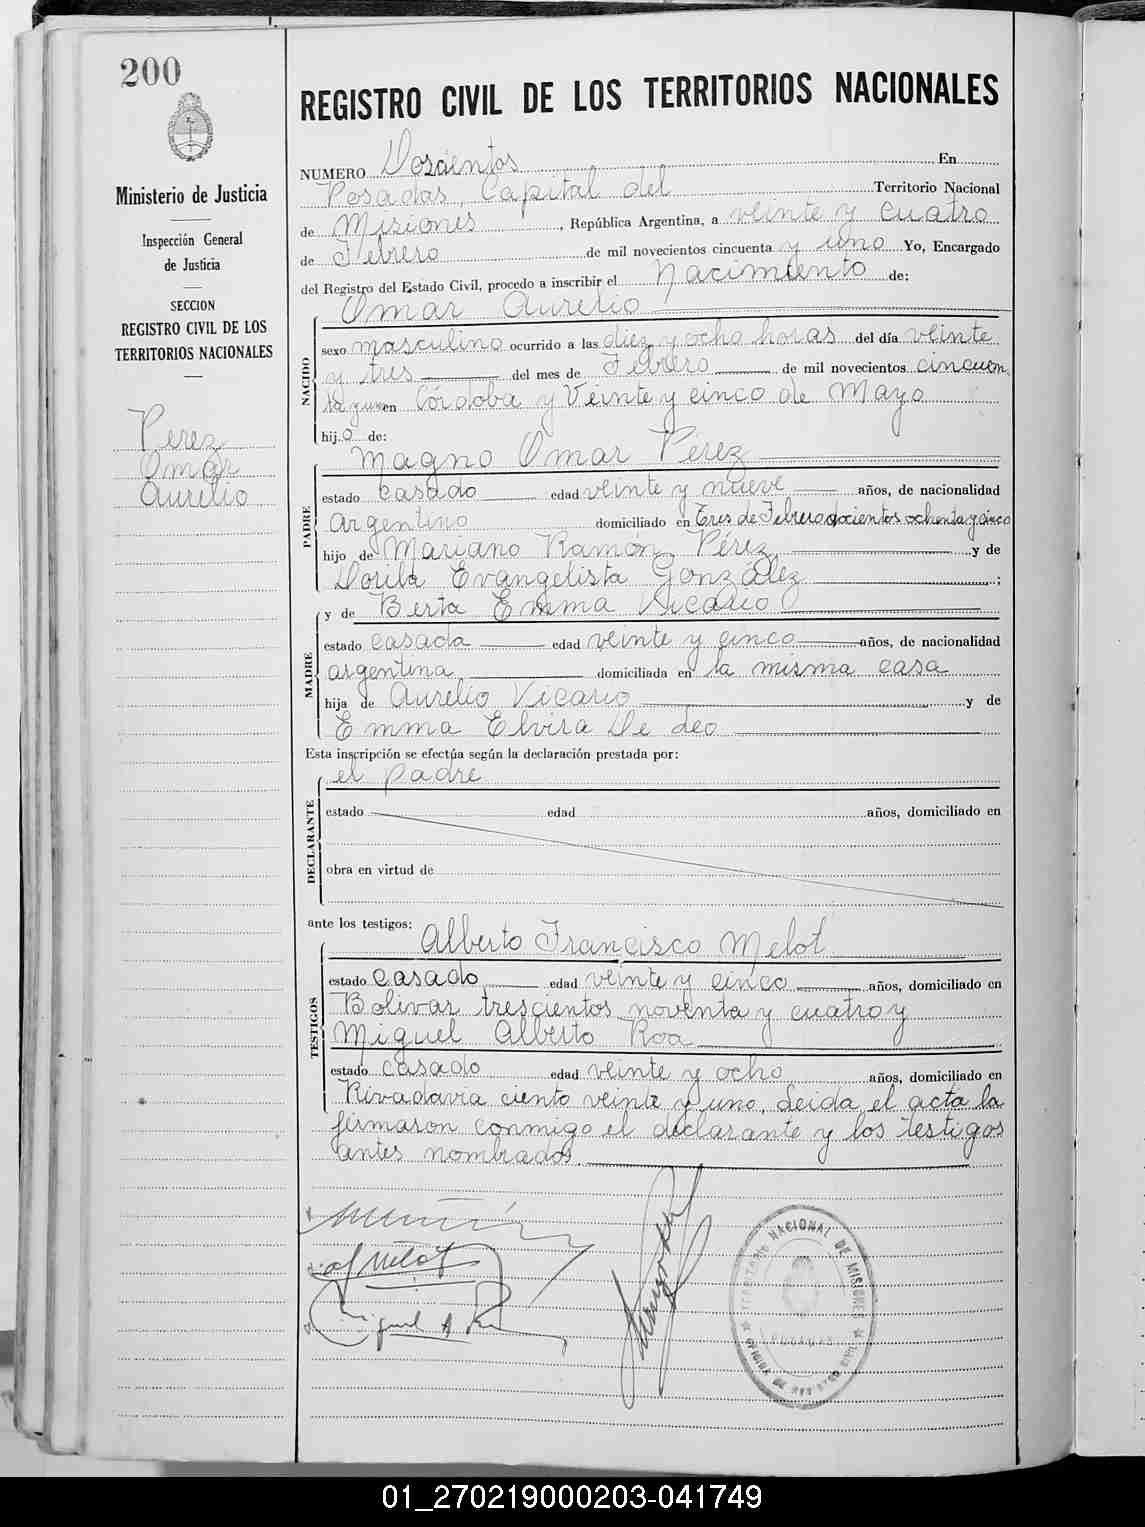 200
Ministerio de Justicia
Inspección General
de Justicia
SECCION
REGISTRO CIVIL DE LOS
TERRITORIOS NACIONALES
Perez
Omar
Aurelio
REGISTRO CIVIL DE LOS TERRITORIOS NACIONALES
NUMERO Doscientos En
Posadas, Capital del Territorio Nacional
de Misiones, República Argentina, a veinte y cuatro
de Febrero de mil novecientos cincuenta y uno Yo, Encargado
del Registro del Estado Civil, procedo a inscribir el Nacimiento de:
Omar Aurelio
NACIDO
sexo masculino ocurrido a las diez y ocho horas del día veinte
y tres del mes de Febrero de mil novecientos cincuen
ta y uno en Córdoba y Veinte y cinco de Mayo
hij.o de:
Magno Omar Pérez
PADRE
estado casado edad veinte y nueve años, de nacionalidad
argentino domiciliado en Tres de Febrero docientos ochenta y cinco
hijo de Mariano Ramón Pérez y de
Dorila Evangelista González;
y de Berta Emma Vicario
MADRE
estado casada edad veinte y cinco años, de nacionalidad
argentina domiciliada en la misma casa
hija de Aurelio Vicario y de
Emma Elvira De deo
Esta inscripción se efectúa según la declaración prestada por:
el padre
DECLARANTE
estado edad años, domiciliado en
obra en virtud de
ante los testigos:
Alberto Francisco Melot
TESTIGOS
estado casado edad veinte y cinco años, domiciliado en
Bolivar trescientos noventa y cuatro y
Miguel Alberto Roa
estado casado edad veinte y ocho años, domiciliado en
Rivadavia ciento veinte y uno. Leida el acta la
firmaron conmigo el declarante y los testigos
antes nombrados
Melot
Miguel A. Roa
TERRITORIO NACIONAL DE MISIONES
POSADAS
01_270219000203-041749